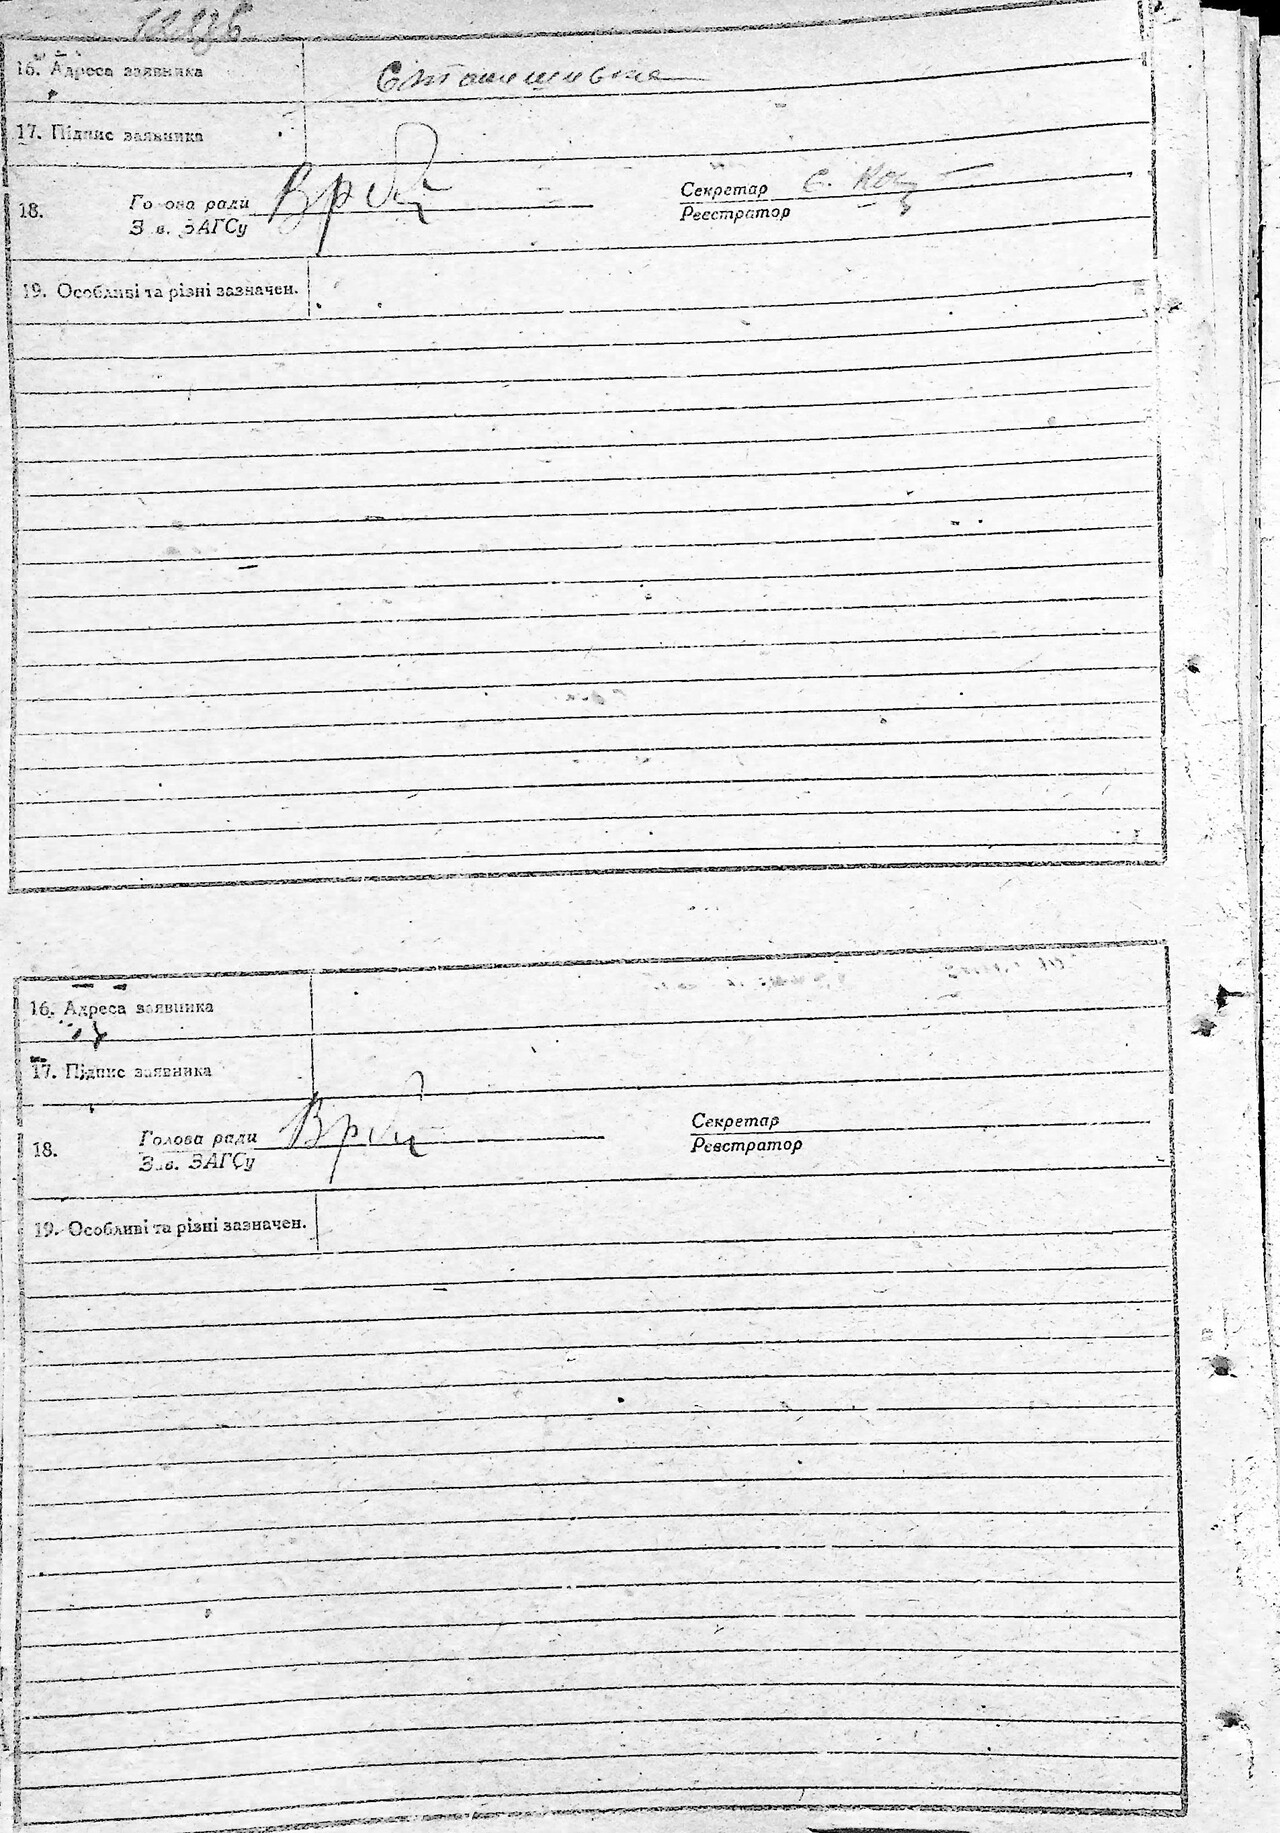 16. Адреса заявника
17. Підпис заявника
18. Голова ради Секретар
Зав. ЗАГСу Реєстратор
19. Особливі та різні зазначен.
16. Адреса заявника
17. Підпис заявника
18. Голова ради Секретар
Зав. ЗАГСу Реєстратор
19. Особливі та різні зазначен.